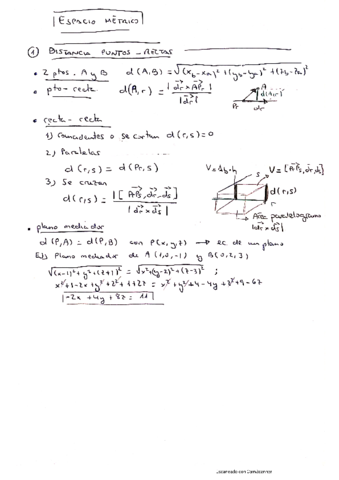 ESPACIO MÉTRICO
① DISTANCIA PUNTOS - RECTAS
• 2 ptos. A y B d(A,B) = √(x_b-x_a)²+(y_b-y_a)²+(z_b-z_a)²
• pto-recta d(A,r) = |d⃗r x A⃗Pr| / |d⃗r|
A
d(A,r)
Pr
dr
• recta - recta
1) Coincidentes o se cortan d(r,s)=0
2) Paralelas
d(r,s) = d(Pr,s)
3) Se cruzan
d(r,s) = |[A⃗Ps, d⃗r, d⃗s]| / |d⃗r x d⃗s|
V = Ab·h
s
V = [A⃗Ps, d⃗r, d⃗s]
d(r,s)
r
Área paralelogramo
|d⃗r x d⃗s|
• plano mediador
d(P,A) = d(P,B) con P(x,y,z) → ec de un plano
Ej) Plano mediador de A(1,0,-1) y B(0,2,3)
√(x-1)²+y²+(z+1)² = √x²+(y-2)²+(z-3)² ;
x²+1-2x+y²+z²+1+2z = x²+y²+4-4y+z²+9-6z
|-2x+4y+8z=11|
Escaneado con CamScanner